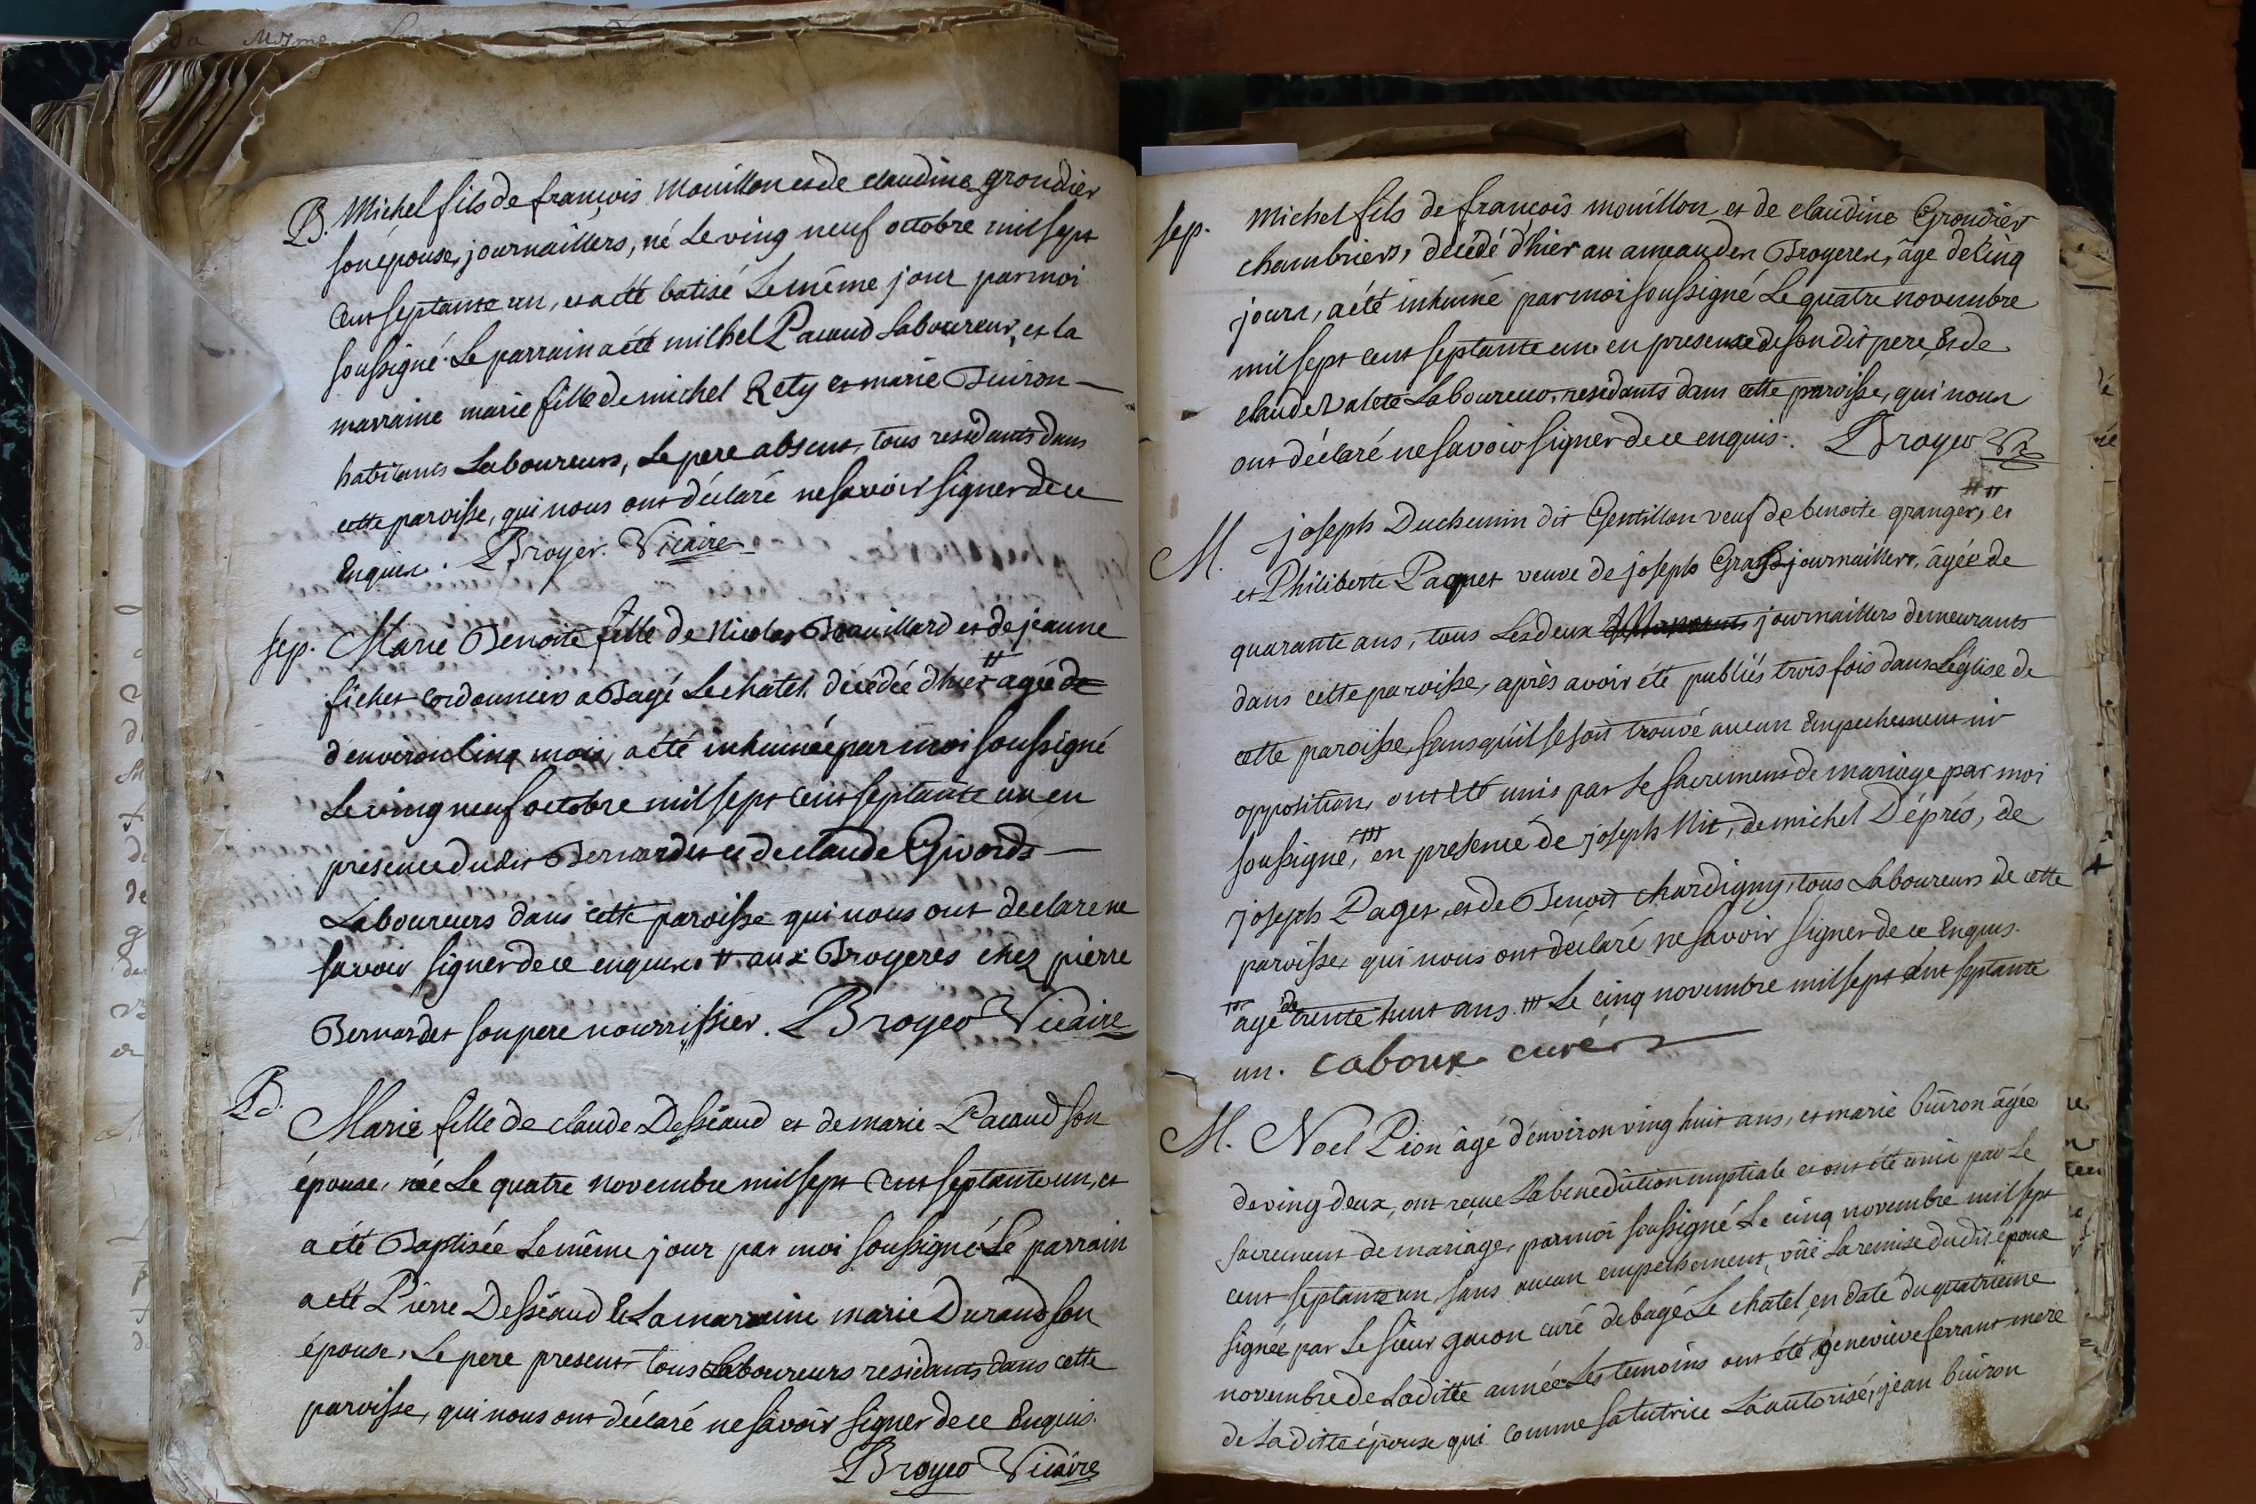 B. Michel fils de françois Mouillon et de claudine grondier
son épouse, journaillers, né le ving neuf octobre mil sept
Cent septante un, et a été batisé le même jour par moi
soussigné. Le parrain a été milhel Pacaud Laboureur, et la
marraine marie fille de michel Rety et marie Buiron —
habitants Laboureurs, Le pere absent, tous residants dans
cette paroisse, qui nous ont déclaré ne savoir signer de ce
Enquis. Broyer. Vicaire
sep. Marie Benoite fille de Nicolas Brauillard et de jeanne
fichet cordonniers a Bagé Le chatel décédée d'hier # agée de
d'environ Cinq mois, a été inhumée par moi soussigné
Le ving neuf octobre mil sept Cent septante un en
présence dudit Bernardet et de claude Givords —
Laboureurs dans cette paroisse qui nous ont declaré ne
savoir signer de ce enquis # aux Broyeres chez pierre
Bernardet son pere nourrissier. Broyer Vicaire
Marie fille de claude Desséaud et de marie Pacaud son
épouse, née Le quatre novembre mil sept Cent septante un, et
a été Baptisée Le même jour par moi soussigné Le parrain
a été Pierre Desséaud & La marraine marie Durand son
épouse, Le pere present tous Laboureurs residants dans cette
paroisse, qui nous ont déclaré ne savoir signer de ce Enquis.
Broyer Vicaire
sep. Michel fils de françois mouillon et de claudine Grondier
chambriers, décédé d'hier au ameau des Broyeres, âge de Cinq
jours, a été inhumé par moi soussigné Le quatre novembre
mil sept cent septante un en presence de son dit pere & de
claude Laboureur residants dans cette paroisse, qui nous
ont déclaré ne savoir signer de ce enquis. Broyer
M. joseph Duchemin dit Gentillon veuf de benoite granger, # et
et Philiberte Paquet veuve de joseph journaillers, âgée de
quarante ans, tous Les deux journaillers demeurants
dans cette paroisse, après avoir été publiés trois fois dans L'église de
cette paroisse, sans qu'il se soit trouvé aucun Empechement ni
opposition, ont été unis par Le sacrement de mariage par moi
soussigné, en presence de joseph Nit, de michel Déprés, de
joseph Paget, et de Benoit chardigny, tous Laboureurs de cette
paroisse, qui nous ont déclaré ne savoir signer de ce Enquis.
# agé de trente huit ans. Le cinq novembre mil sept cent septante
un. caboux curé
M. Noel Pion âgé d'environ ving huit ans, et marie buiron âgée
de ving deux, ont reçue La benediction nuptiale et ont été unis par Le
sacrement de mariage, par moi soussigné Le cinq novembre mil sept
cent septante un, sans aucun empechement, vûe La remise dudit époux
signée par Le sieur gacon curé de bagé Le chatel, en date du quatrieme
novembre de Laditte année. Les temoins ont été genevieve ferrant mere
de Laditte épouse qui comme sa tutrice L'a autorisé, jean buiron